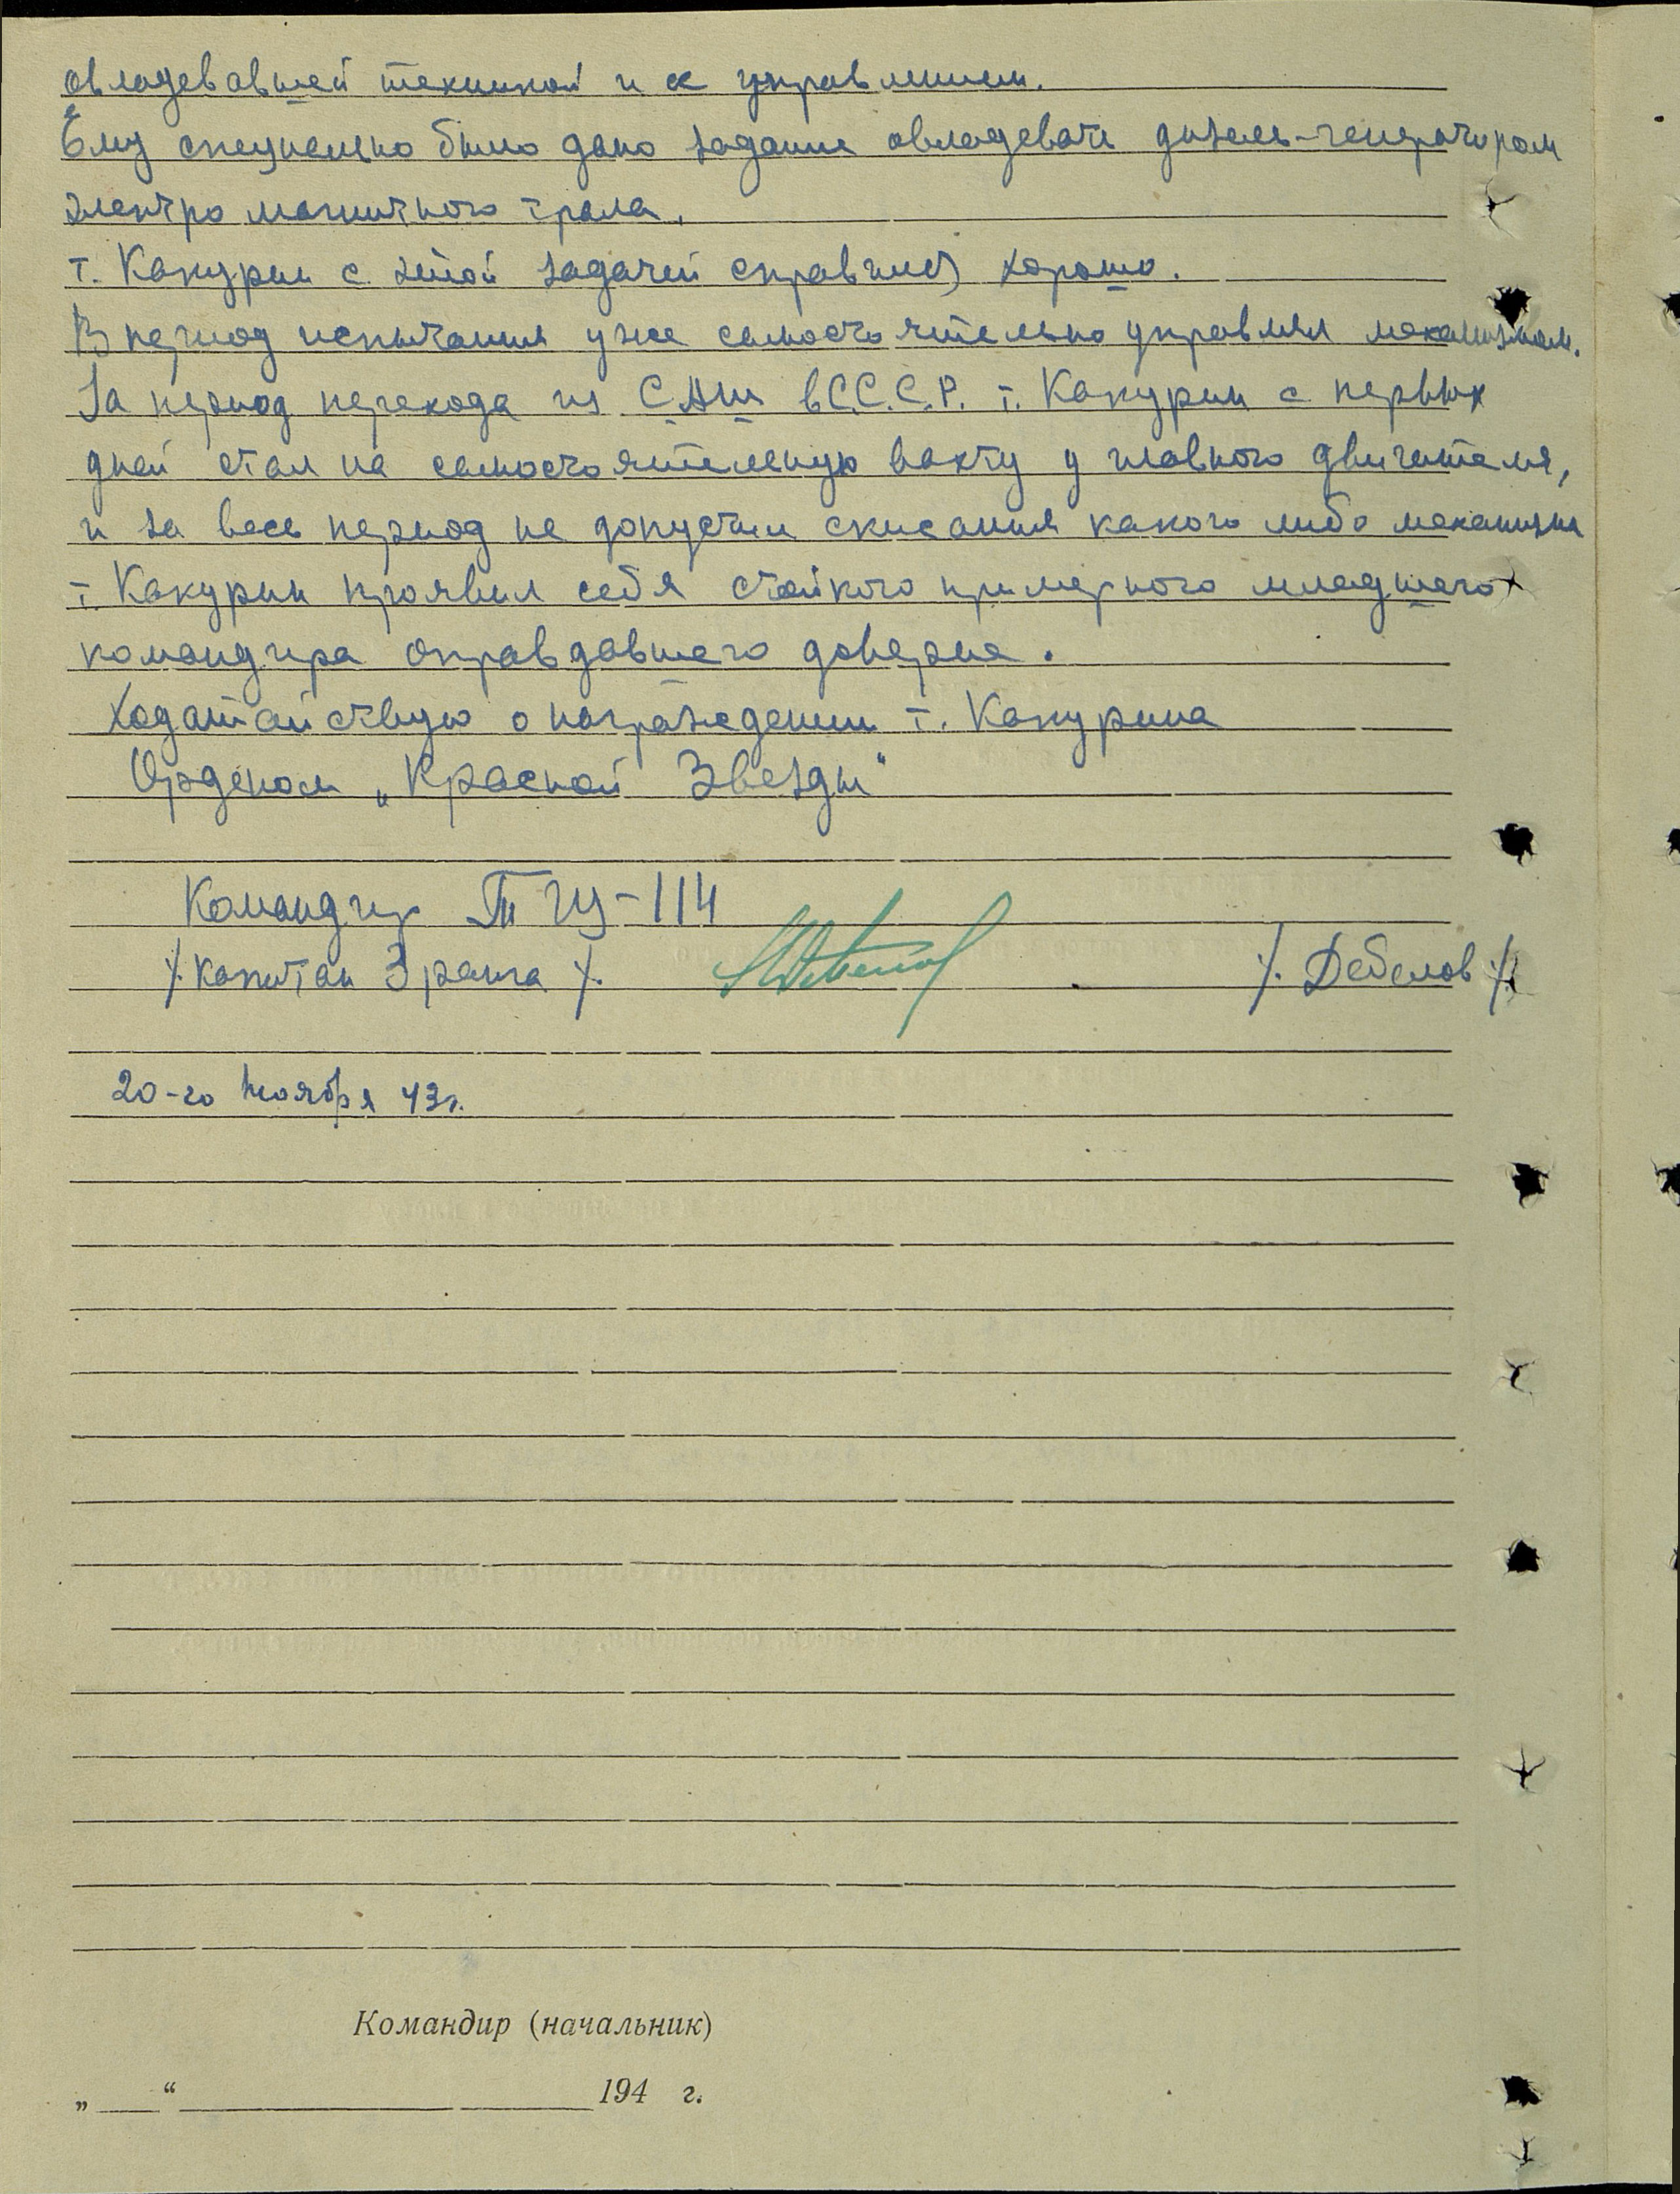 овладевавшей техникой и ее управлением.
Ему специально было дано задание овладевать дизель-генератором
электро магнитного трала.
т. Какурин с этой задачей справился хорошо.
В период испытания уже самостоятельно управлял механизмом.
За период перехода из С.А.Ш в С.С.С.Р. т. Какурин с первых
дней стал на самостоятельную вахту у главного двигателя,
и за весь период не допустил скисания какого либо механизма
т. Какурин проявил себя стойкого примерного младшего
командира оправдавшего доверие.
Ходатайствую о награждении т. Какурина
Орденом „Красной Звезды"
Командир ТЩ-114
/. капитан 3 ранга /. /. Дебелов /.
20-го ноября 43г.
Командир (начальник)
„ “ 194 г.